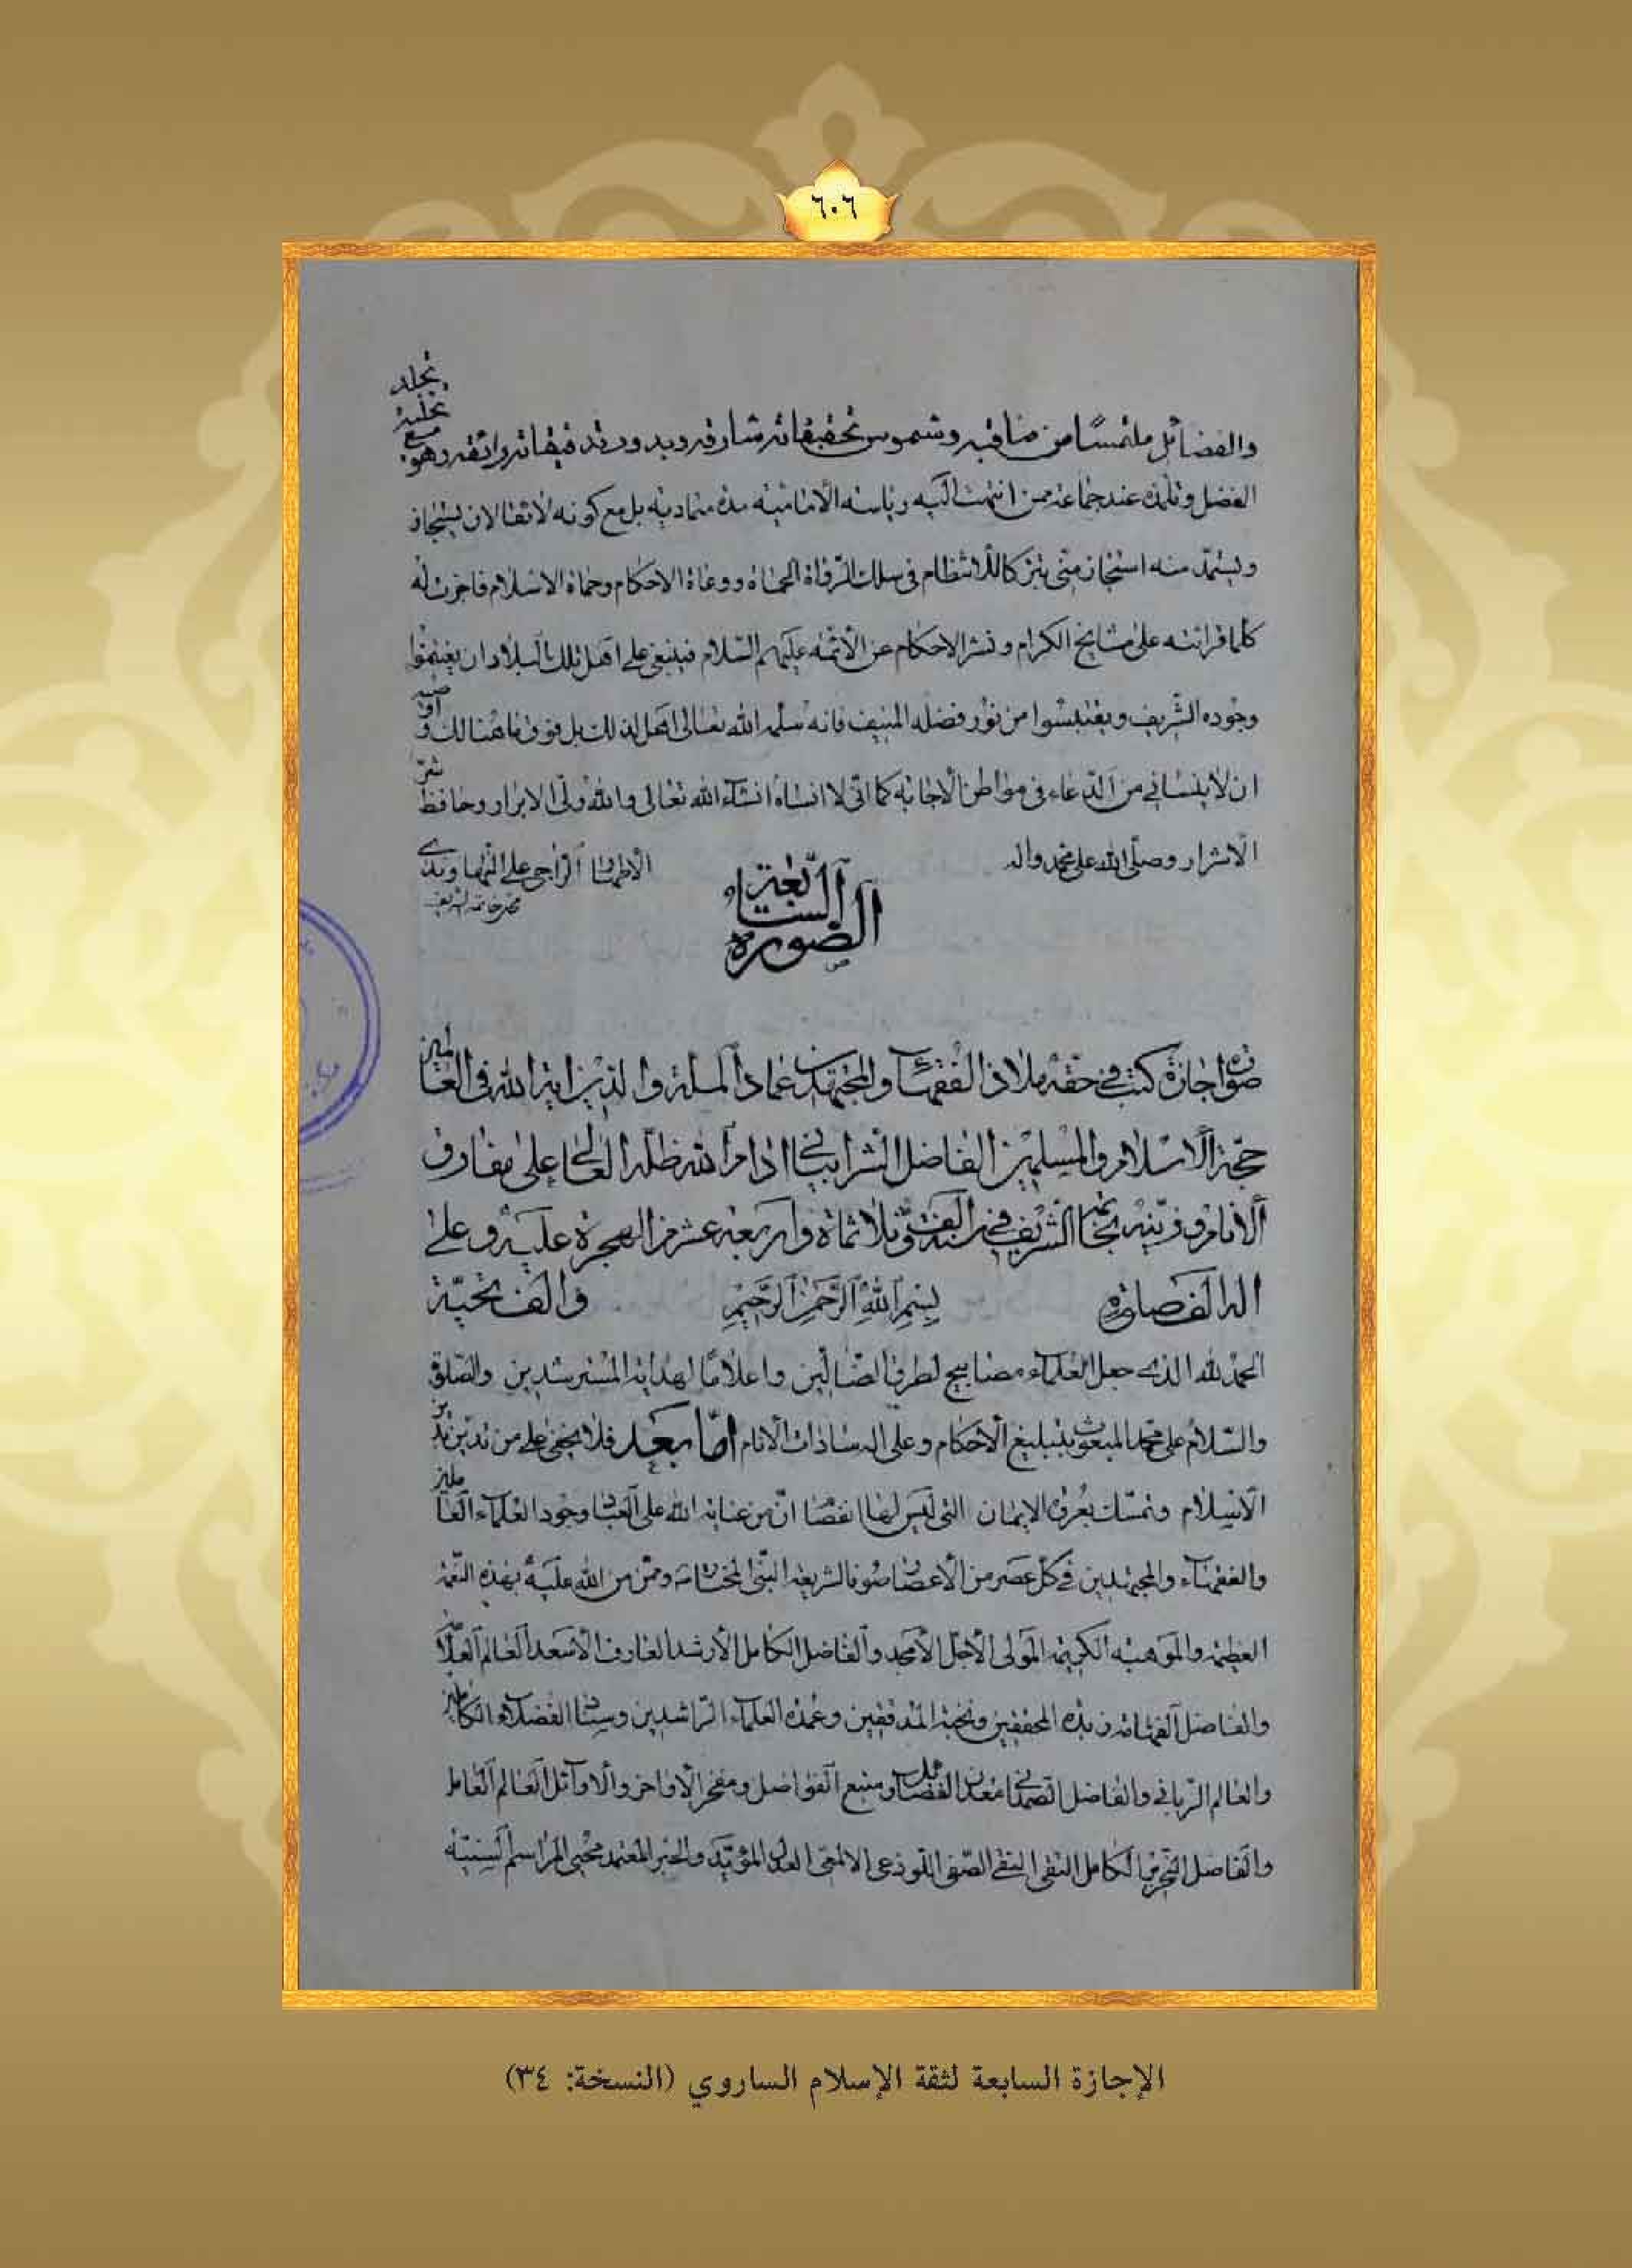 ٦٠٦
والفضائل ملتمسًا من مناقبه وشموس تحقيقاته شارقه وبدور تدقيقاته رائقه وهو مع
الفضل وتلمذه عند جماعة ممن انتهت اليه رياسه الأماميّة مدة متماديه بل مع كونه لائقا لان يستجاز
ويستمدّ منه استجاز منّي تبركا للانتظام في سلك الرّواة الحماة ووعاة الأحكام وحماة الاسلام فاجزت له
كلما قرأته على مشايخ الكرام ونشر الاحكام عن الأئمّة عليهم السّلام فينبغي على اهل تلك البلاد ان يغتنموا
وجوده الشّريف ويقتبسوا من نور فضله المنيف فانه سلّمه الله تعالى اهل لذلك بل فوق ما هنالك واوصيه
ان لا ينساني من الدّعاء في مواطن الأجابة كما انّي لا انساه انشاء الله تعالى والله ولّي الابرار وحافظ شرّ
الاشرار وصلّى الله على محمد واله
الراجي علي النهاوندي
الصورة السّابعة
صورة اجازة كتب في حقه ملاذ الفقهاء والمجتهدين عماد الملة والدّين اية الله في العالمين
حجّة الاسلام والمسلمين الفاضل الشرابياني ادام الله ظلّه العالي على مفارق
الأنام وزيّنه بخاتمه الشّريف في سنة الف وثلاثمائة واربعة عشر من الهجرة عليه وعلى
اله الف صلوة
والف تحيّة
بسم الله الرّحمن الرّحيم
الحمد لله الذي جعل العلماء مصابيح لطرق الضّالين واعلامًا لهداية المسترشدين والصّلوة
والسّلام على محمد المبعوث بتبليغ الأحكام وعلى اله سادات الأنام امّا بعد فلا يخفى على من تديّن بدين
الاسلام وتمسّك بعرى الايمان التي ليس لها انفصام انّ من عناية الله على العباد وجود العلماء العاملين
والفقهاء والمجتهدين في كلّ عصر من الأعصار صونا لشريعة النّبي المختار وممّن منّ الله عليه بهذه النّعمة
العظيمة والموهبة الكريمة المولى الأجلّ الأمجد والفاضل الكامل الأرشد العارف الأسعد العالم العلّامة
والفاضل الفهّامة زبدة المحققين ونخبة المدققين وعمدة العلماء الرّاشدين وسناد الفضلاء الكاملين
والعالم الرّباني والفاضل الصّمداني معدن الفضائل ومنبع الفواضل ومفخر الأواخر والأوائل العالم العامل
والفاضل النّحرير الكامل التقي النقي الصّفي اللوذعي الالمعي العدل المؤيّد والحبر المعتمد محيي المراسم السنيّة
الإجازة السابعة لثقة الإسلام الساروي (النسخة: ٣٤)